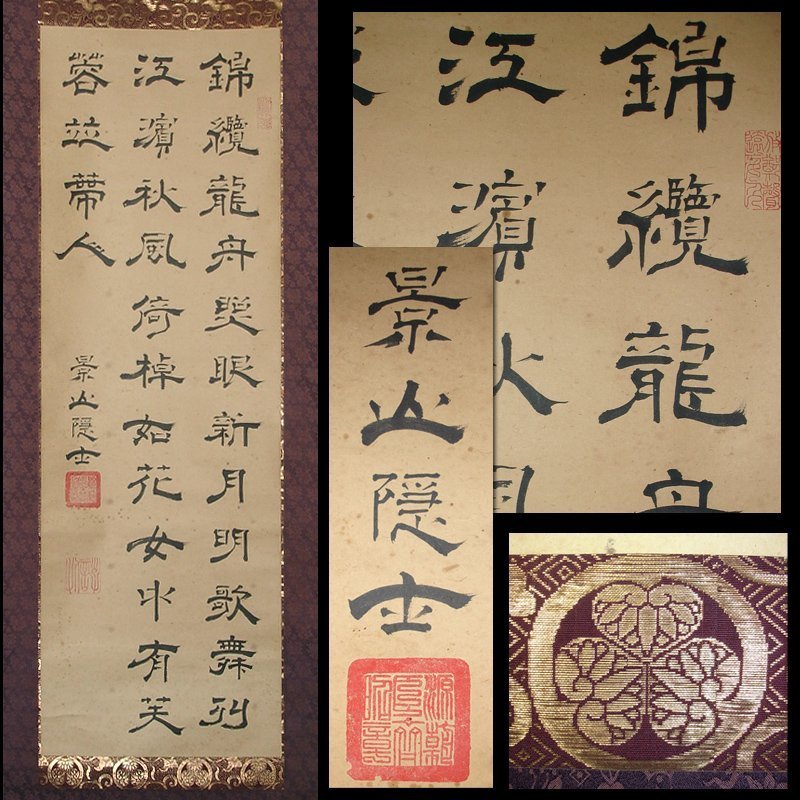 錦纜龍舟照眼新月明歌舞列
江濱秋風倚棹如花女中有芙
蓉並蔕人
景山隱士
錦纜龍舟
江濱秋風
景山隱士